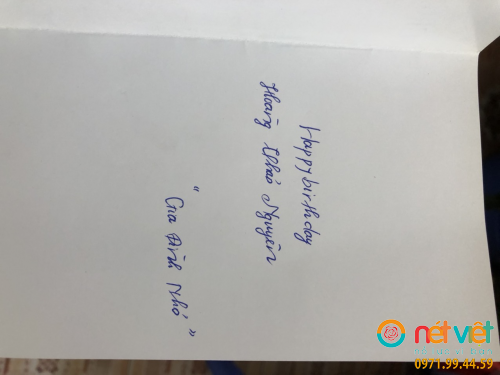 Happy birthday
Hoàng Thảo Nguyên
" Gia Đình Nhỏ "
nét việt
0971.99.44.59